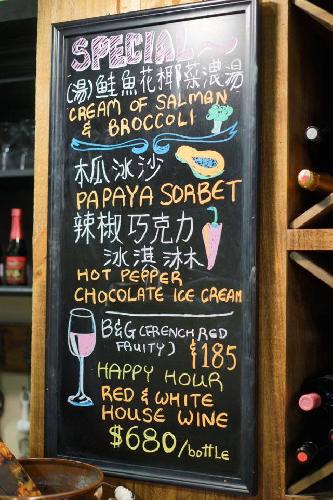 SPECIAL~
(湯)鮭魚花椰菜濃湯
CREAM OF SALMON
& BROCCOLI
木瓜冰沙
PAPAYA SORBET
辣椒巧克力
冰淇淋
HOT PEPPER
CHOCOLATE ICE CREAM
B&G (FRENCH RED
FRUITY) $185
HAPPY HOUR
RED & WHITE
HOUSE WINE
$680/bottle